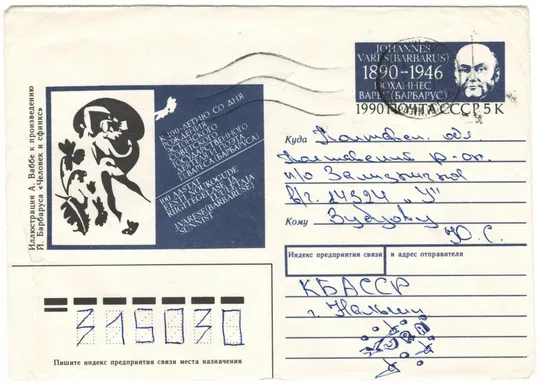 JOHANNES
VARES (BARBARUS)
1890–1946
ИОХАННЕС
ВАРЕС (БАРБАРУС)
1990 ПОЧТА СССР 5 К
Иллюстрация А. Ваббе к произведению
Й. Барбаруса «Человек и сфинкс»
К 100-ЛЕТИЮ СО ДНЯ
РОЖДЕНИЯ
ЭСТОНСКОГО
СОВЕТСКОГО
ГОСУДАРСТВЕННОГО
ДЕЯТЕЛЯ И ПОЭТА
Й. ВАРЕСА (БАРБАРУСА)
100 AASTAT
EESTI NÕUKOGUDE
RIIGITEGELASE, POEEDI
J. VARESE (BARBARUSE)
SÜNNIST
Куда Полтавск обл
Полтавский р-он.
п/о
в/ч 14324 „У"
Кому
Ю. С.
Индекс предприятия связи и адрес отправителя
КБАССР
г. Нальчик
315030
Пишите индекс предприятия связи места назначения